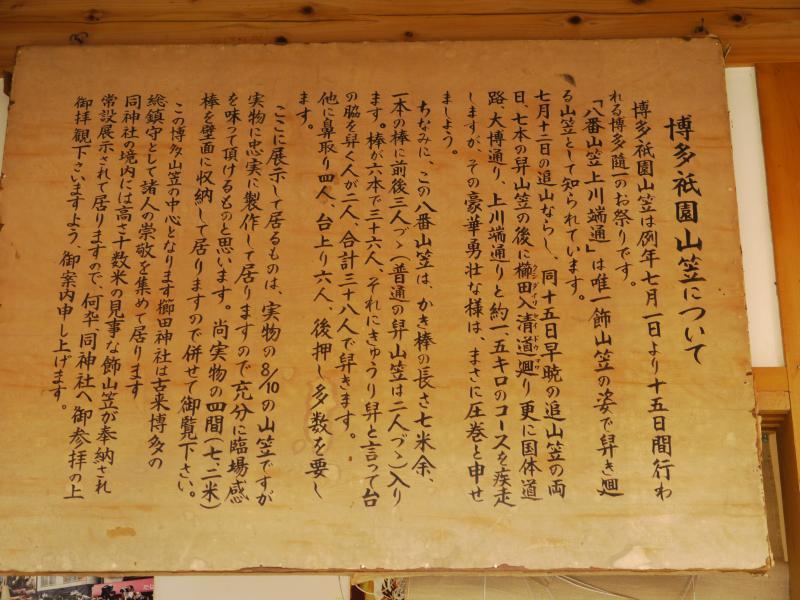 博多祇園山笠について
博多祇園山笠は例年七月一日より十五日間行わ
れる博多随一のお祭りです。
「八番山笠上川端通」は唯一飾山笠の姿で舁き廻
る山笠として知られています。
七月十二日の追山ならし、同十五日早暁の追山笠の両
日、七本の舁山笠の後に櫛田入清道廻り更に国体道
路、大博通り、上川端通りと約一、五キロのコースを疾走
しますが、その豪華勇壮な様は、まさに圧巻と申せ
ましよう。
ちなみに、この八番山笠は、かき棒の長さ七米余、
一本の棒に前後三人づゝ(普通の舁山笠は二人づゝ)入り
ます。棒が六本で三十六人、それにきゅうり舁と言って台
の脇を舁く人が二人、合計三十八人で舁きます。
他に鼻取り四人、台上り六人、後押し多数を要し
ます。
ここに展示して居るものは、実物の8/10の山笠ですが
実物に忠実に製作して居りますので充分に臨場感
を味って頂けるものと思います。尚実物の四間(七、二米)
棒を壁面に収納して居りますので併せて御覧下さい。
この博多山笠の中心となります櫛田神社は古来博多の
総鎮守として諸人の崇敬を集めて居ります
同神社の境内には高さ十数米の見事な飾山笠が奉納され
常設展示されて居りますので、何卆同神社へ御参拝の上
御拝観下さいますよう、御案内申し上げます。